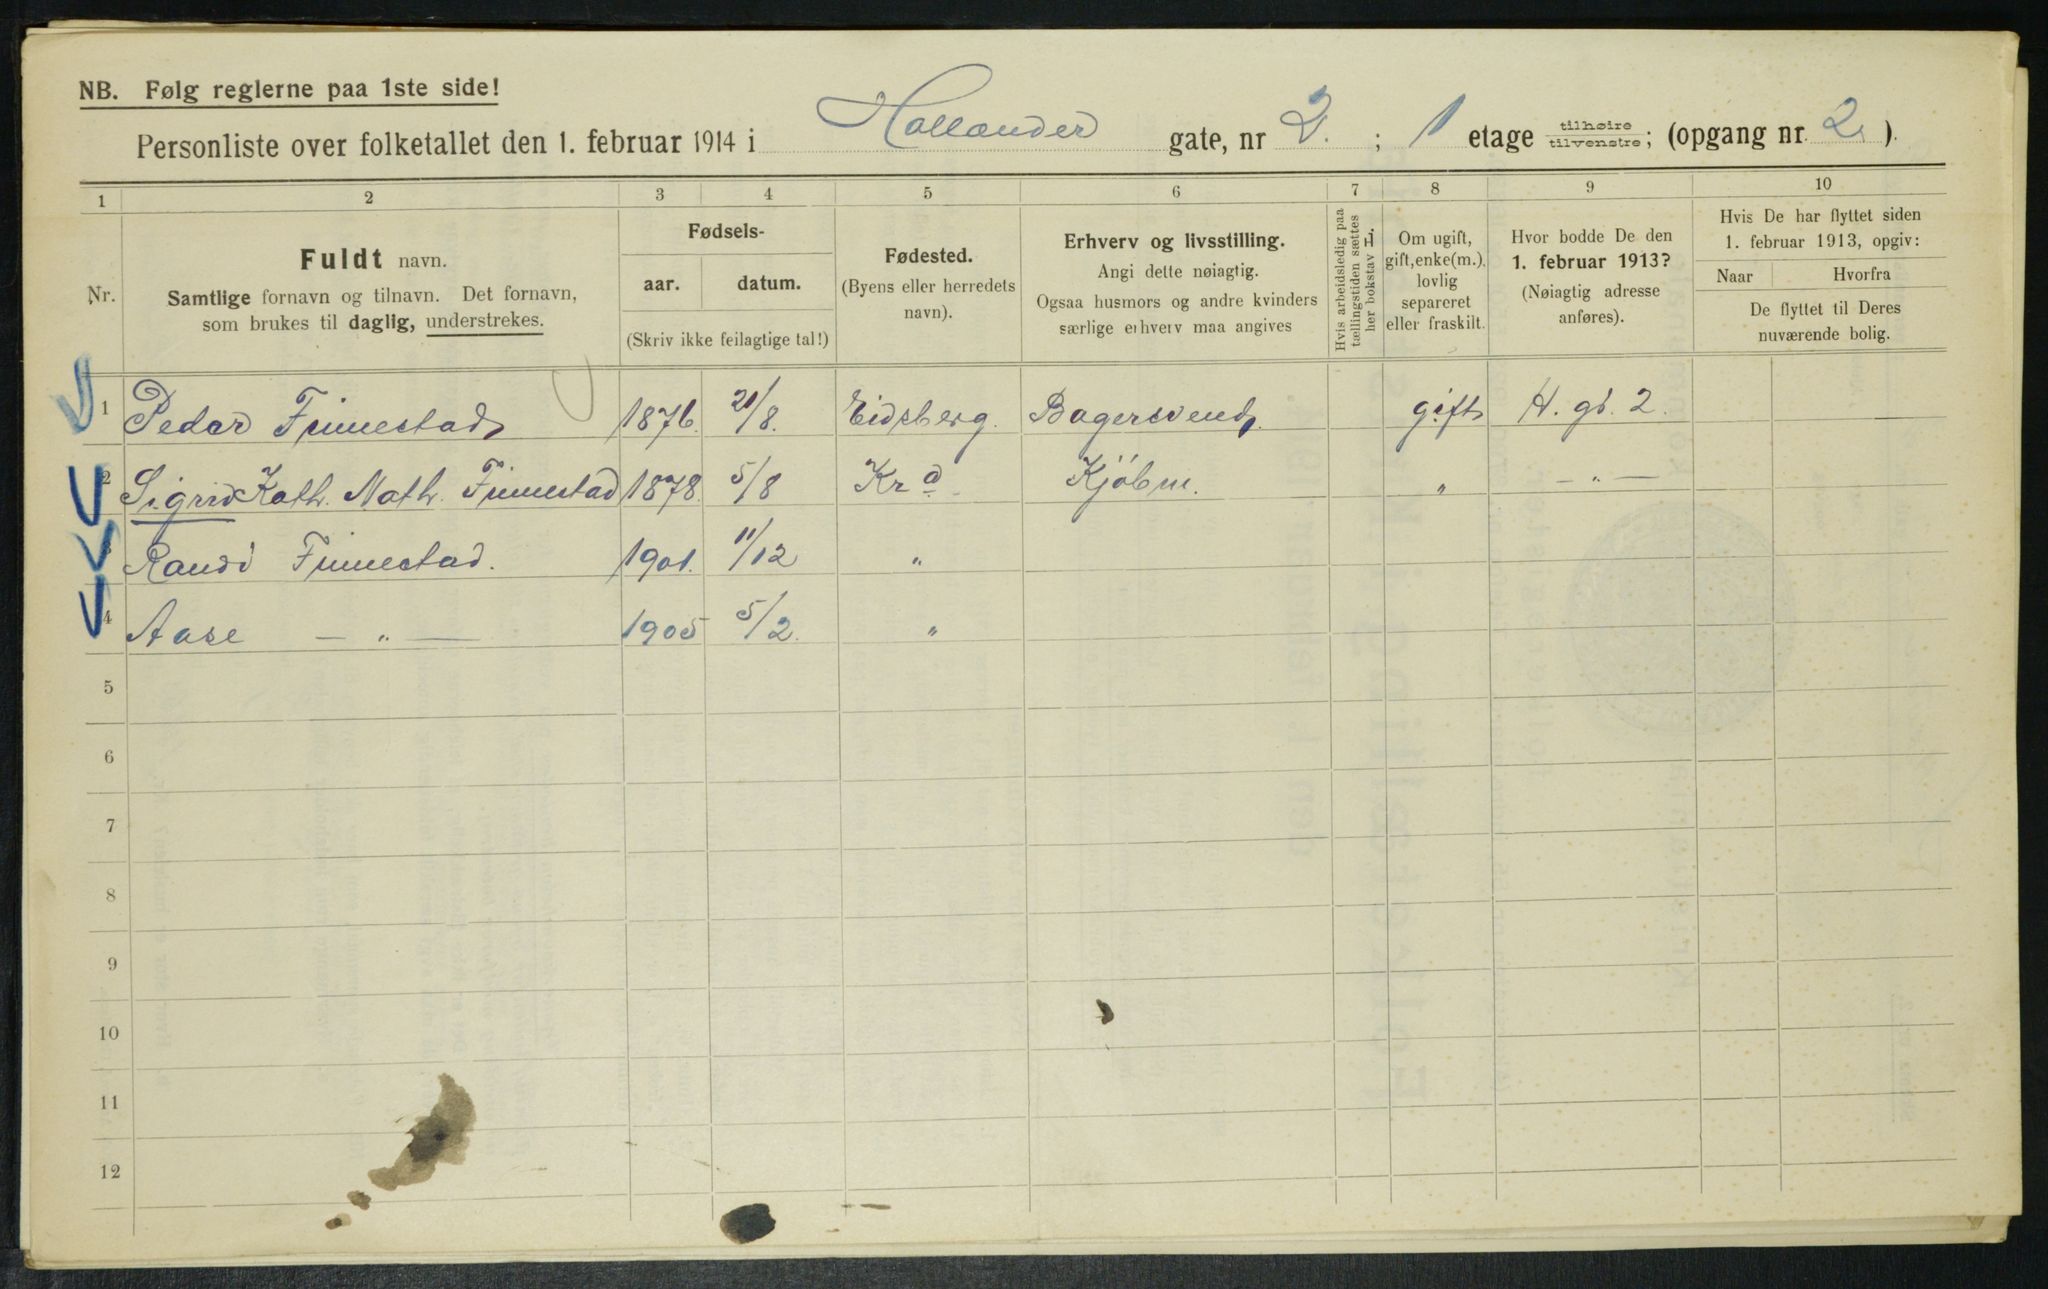 NB. Følg reglerne paa 1ste side!
Personliste over folketallet den 1. februar 1914 i Hollænder gate, nr 2. ; 1 etage tilhøire/tilvenstre; (opgang nr. 2 ).
1 2 3 4 5 6 7 8 9 10
Nr.
Fuldt navn.
Samtlige fornavn og tilnavn. Det fornavn,
som brukes til daglig, understrekes.
Fødsels-
aar. datum.
(Skriv ikke feilagtige tal!)
Fødested.
(Byens eller herredets
navn).
Erhverv og livsstilling.
Angi dette nøiagtig.
Ogsaa husmors og andre kvinders
særlige erhverv maa angives
Hvis arbeidsledig paa
tællingstiden sættes
her bokstav H.
Om ugift,
gift, enke(m.),
lovlig
separeret
eller fraskilt.
Hvor bodde De den
1. februar 1913?
(Nøiagtig adresse
anføres).
Hvis De har flyttet siden
1. februar 1913, opgiv:
Naar Hvorfra
De flyttet til Deres
nuværende bolig.
1 Peder Finnestad 1876. 21/8. Eidsberg. Bagersvend. gift H. gd. 2.
2 Sigrid Kath. Math. Finnestad 1878. 5/8 Kra Kjøbm. " — " —
3 Randi Finnestad. 1901. 11/12 "
4 Aase — " — 1905 5/2. "
5
6
7
8
9
10
11
12